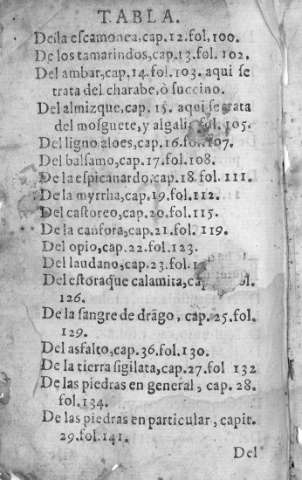 TABLA.
Dela escamonea,cap.12.fol,100.
De los tamarindos,cap,13.fol. 102.
Del ambar,cap,14.fol.103. aqui se
trata del charabe,ò succino.
Del almizque, cap. 15. aqui se trata
del mosguete, y algalia, fol. 105.
Del ligno aloes, cap.16.fol.107.
Del balsamo,cap.17.fol.108.
De la espicanardo,cap.18.fol. 111.
De la myrrha,cap.19.fol.112.
Del castoreo,cap.20.fol.115.
De la canfora,cap.21.fol. 119.
Del opio,cap.22.fol.123.
Del laudano,cap.23.fol.
Del estoraque calamita,
126.
De la sangre de drago, cap.25.fol.
129.
Del asfalto,cap.36.fol.130.
De la tierra sigilata,cap.27.fol 132
De las piedras en general, cap. 28.
fol.134.
De las piedras en particular, capit.
29.fol.141.
Del